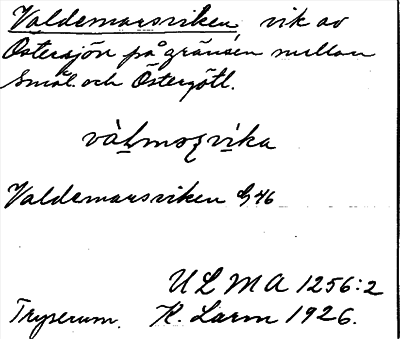 Valdemarsviken vik av
Östersjön på gränsen mellan
Smål. och Östergötl.
Valdemarsviken G 46
ULMA 1256:2
Tryserum. K. Larm 1926.